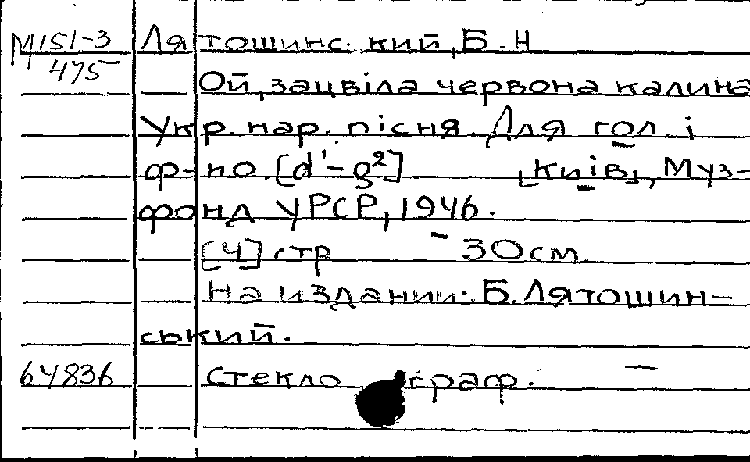 М151-3 Лятошинский, Б.Н
475
Ой, зацвіла червона калина
Укр. нар. пісня. Для гол. і
ф-по. [d¹-g²] [Київ], Муз-
фонд УРСР, 1946.
[4] стр 30см
На издании: Б. Лятошин-
ський.
64836 Стекло граф.